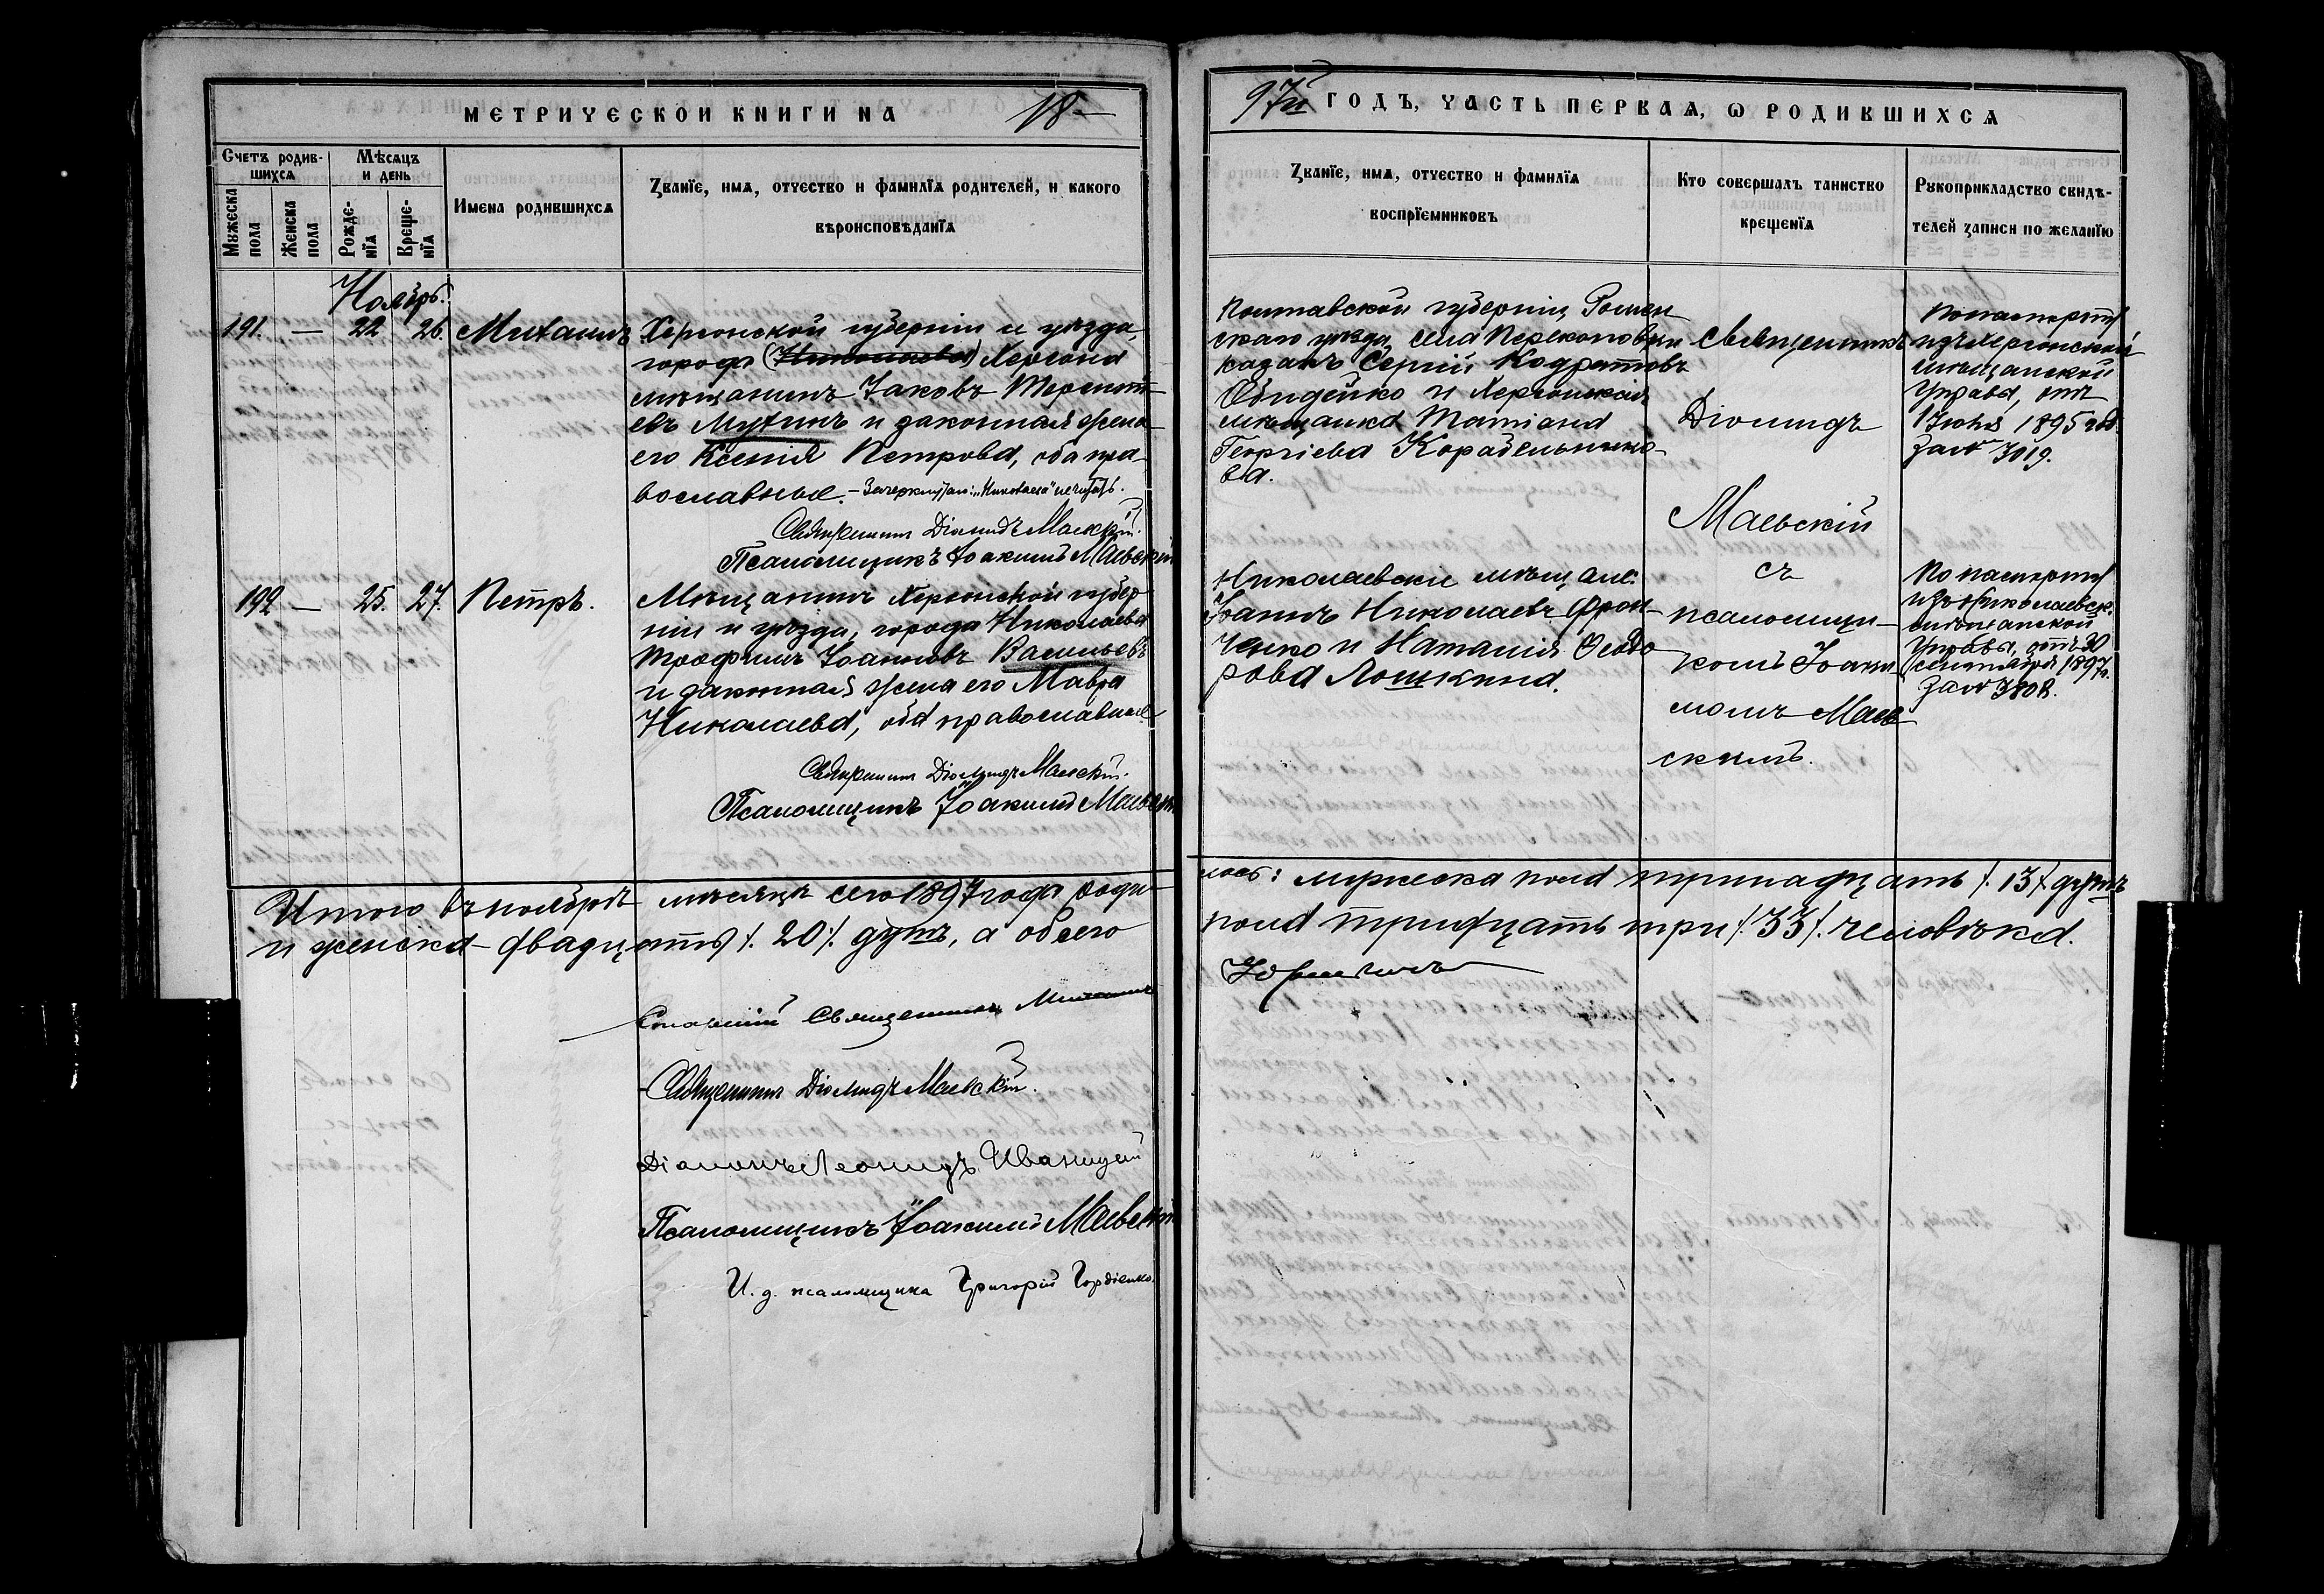 МЕТРИЧЕСКОЙ КНИГИ НА 18-
97й ГОДЪ, ЧАСТЬ ПЕРВАЯ, Ѡ РОДИВШИХСЯ
Счетъ родив-
шихся
Мѣсяцъ
и день
Мужеска
пола
Женска
пола
Рожде-
нїя
Креще-
нїя
Имена родившихся
Званїе, имя, отчество и фамилїя родителей, и какого
вѣроисповѣданїя
Званїе, имя, отчество и фамилїя
воспрїемниковъ
Кто совершалъ таинство
крещенїя
Рукоприкладство свидѣ-
телей записи по желанїю
Ноябрь.
191. — 22 26. Михаилъ
Херсонской губерніи и уѣзда,
города (Николаева) Херсона
мѣщанинъ Іаковъ Терентій-
евъ Мухинъ и законная жена
его Ксенія Петрова, оба пра-
вославные. – Зачеркнутаго: „Николаева" не читать.
Священникъ Діомидъ Маевскій.
Псаломщикъ Іоакимъ Маевскій
Полтавской губерніи Ромен-
скаго уѣзда, села Перекоповки
казакъ Сергій Кодратовъ
Обидейко и Херсонская
мѣщанка Татіана
Георгіева Корабельнико-
ва.
Священникъ
Діомидъ
Маевскій
съ
псаломщи-
комъ Іоаки-
момъ Маев-
скимъ.
По паспорту
изъ Херсонской
мѣщанской
Управы, отъ
1 Іюня 1895 год.
за № 3019.
192 — 25. 27. Петръ.
Мѣщанинъ Херсонской губер-
ніи и уѣзда, города Николаева
Трофимъ Іоанновъ Васильевъ
и законная жена его Мавра
Николаева, оба православные
Священникъ Діомидъ Маевскій.
Псаломщикъ Іоакимъ Маевскій
Николаевскіе мѣщане:
Іоаннъ Николаевъ Фрон-
ченко и Наталія Ѳеодо-
рова Лошкина.
По паспорту
изъ Николаевск.
мѣщанской
Управы, отъ 30
сентября 1897 г.
за № 3808.
Итого въ ноябрѣ мѣсяцѣ сего 1897 года роди-
лось: мужеска пола тринадцать /. 13 /. душъ
и женска двадцать /. 20 /. душъ, а обоего
пола тридцать три /. 33 /. человѣка.
Старшій Священникъ Михаилъ
Священникъ Діомидъ Маевскій.
Діаконъ Леонидъ Иваницкій
Псаломщикъ Іоакимъ Маевскій
И. д. псаломщика Григорій Гордіенко.